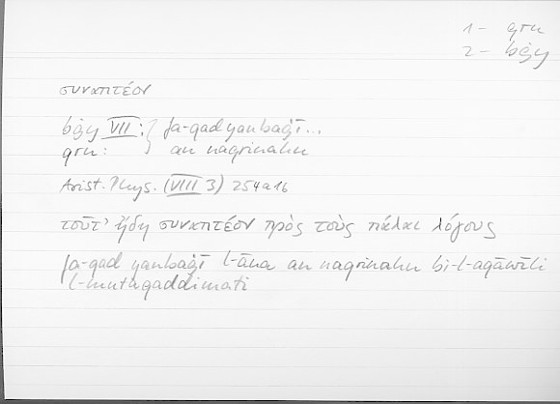 1 - qrn
2 - bġy
συναπτέον
bġy VII: } fa-qad yanbaġī...
qrn: } an naqrinahu
Arist. Phys. (VIII 3) 254a16
τοῦτ' ἤδη συναπτέον πρὸς τοὺς πάλαι λόγους
fa-qad yanbaġī l-āna an naqrinahu bi-l-aqāwīli
l-mutaqaddimati